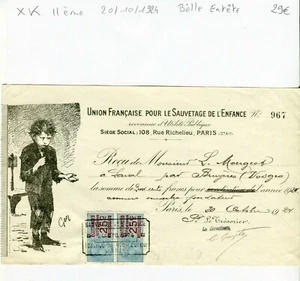 XK 11ème 20/10/1924 Belle Entête 29€
UNION FRANÇAISE POUR LE SAUVETAGE DE L'ENFANCE N° 967
reconnue d'Utilité Publique
SIÈGE SOCIAL: 108, Rue Richelieu, PARIS
Reçu de Monsieur L. Mougeot
à Laval par Bruyères (Vosges)
la somme de francs pour l'année 1924
comme membre fondateur
Paris, le 20 Octobre 1924
Le Trésorier